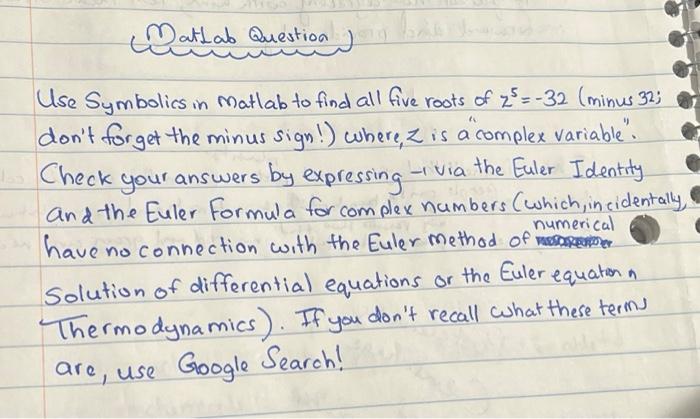 MatLab Question
Use Symbolics in matlab to find all five roots of z⁵=-32 (minus 32;
don't forget the minus sign!) where, z is a "complex variable".
Check your answers by expressing -1 via the Euler Identity
and the Euler Formula for complex numbers (which, incidentally,
have no connection with the Euler method of numerical
Solution of differential equations or the Euler equation n
Thermodynamics). If you don't recall what these terms
are, use Google Search!